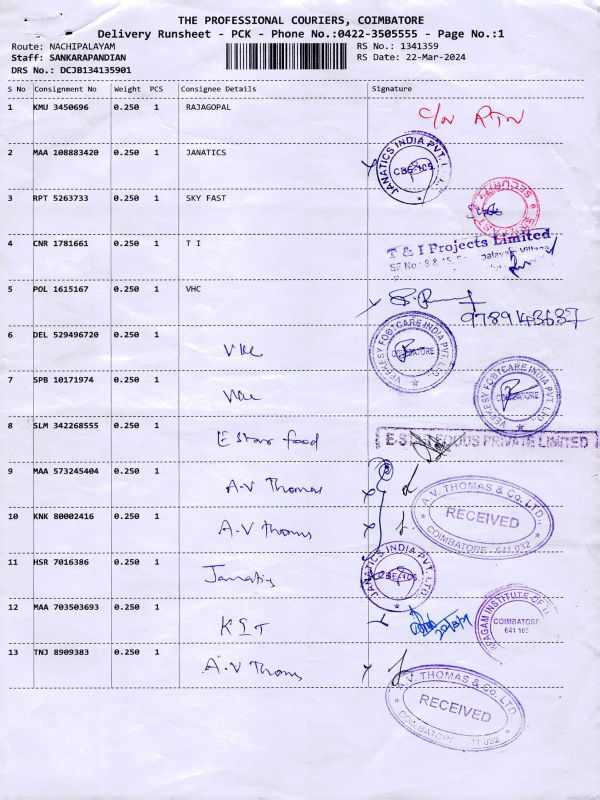 THE PROFESSIONAL COURIERS, COIMBATORE
Delivery Runsheet - PCK - Phone No.:0422-3505555 - Page No.:1
Route: NACHIPALAYAM
Staff: SANKARAPANDIAN
DRS No.: DCJB134135901
RS No.: 1341359
RS Date: 22-Mar-2024
S No Consignment No Weight PCS Consignee Details Signature
1 KMU 3450696 0.250 1 RAJAGOPAL C/N RTN
2 MAA 108883420 0.250 1 JANATICS
JANATICS INDIA PVT. CBE-105
3 RPT 5263733 0.250 1 SKY FAST
SECURITY
4 CNR 1781661 0.250 1 T I
T & I Projects Limited
SF No : 8 &
5 POL 1615167 0.250 1 VHC
9789143637
6 DEL 529496720 0.250 1 VKC
VERKESY FOOTCARE INDIA PVT. LTD. COIMBATORE
7 SPB 10171974 0.250 1 VKC
VERKESY FOOTCARE INDIA PVT. LTD. COIMBATORE
8 SLM 342268555 0.250 1 E Star food
PRIVATE LIMITED
9 MAA 573245404 0.250 1 A.V Thomas
A.V. THOMAS & Co. LTD.,
RECEIVED
COIMBATORE - 641 032
10 KNK 80002416 0.250 1 A.V Thomas
11 HSR 7016386 0.250 1 Janatics
JANATICS INDIA PVT. LTD CBE-105
12 MAA 703503693 0.250 1 KIT
INSTITUTE OF
COIMBATORE
641 105
13 TNJ 8909383 0.250 1 A.V Thomas
A.V. THOMAS & Co. LTD
RECEIVED